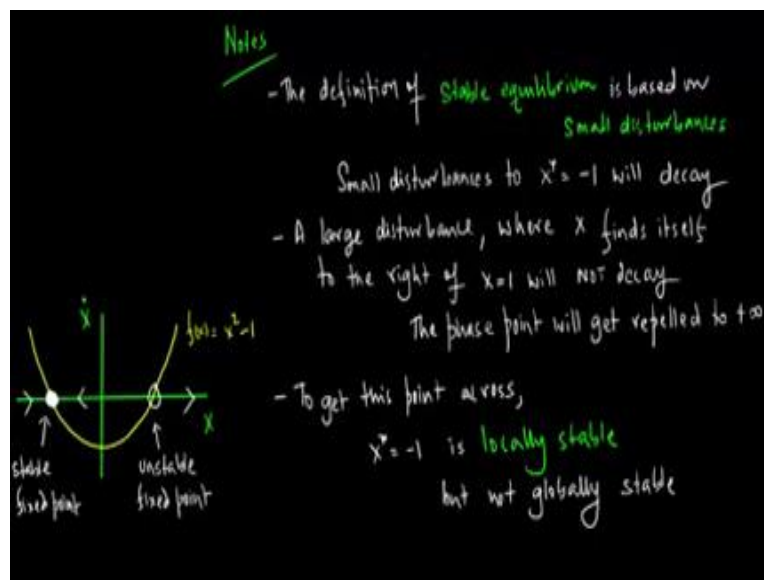 Notes
- The definition of stable equilibrium is based on
small disturbances
Small disturbances to x* = -1 will decay
- A large disturbance, where x finds itself
to the right of x=1 will NOT decay
The phase point will get repelled to +∞
- To get this point across,
x* = -1 is locally stable
but not globally stable
ẋ
f(x) = x²-1
x
stable
fixed point
unstable
fixed point